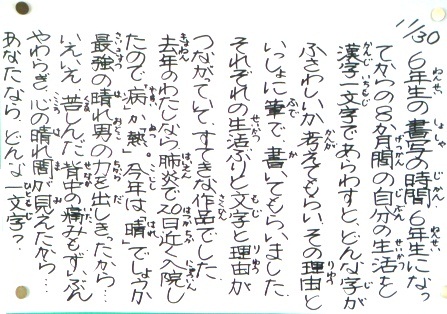 11/30
6年生の書写の時間。6年生になっ
てからの8か月間の自分の生活を
漢字一文字であらわすと、どんな字が
ふさわしいか考えてもらい、その理由と
いっしょに筆で書いてもらいました。
それぞれの生活ぶりと文字と理由が
つながっていて、すてきな作品でした。
去年のわたしなら、肺炎で20日近く入院し
たので「病」か「熱」。今年は「晴」でしょうか
最強の晴れ男の力を出しきったから…
いえいえ、苦しんだ背中の痛みも、ずいぶん
やわらぎ、心の晴れ間が見えたから…
あなたなら、どんな一文字?